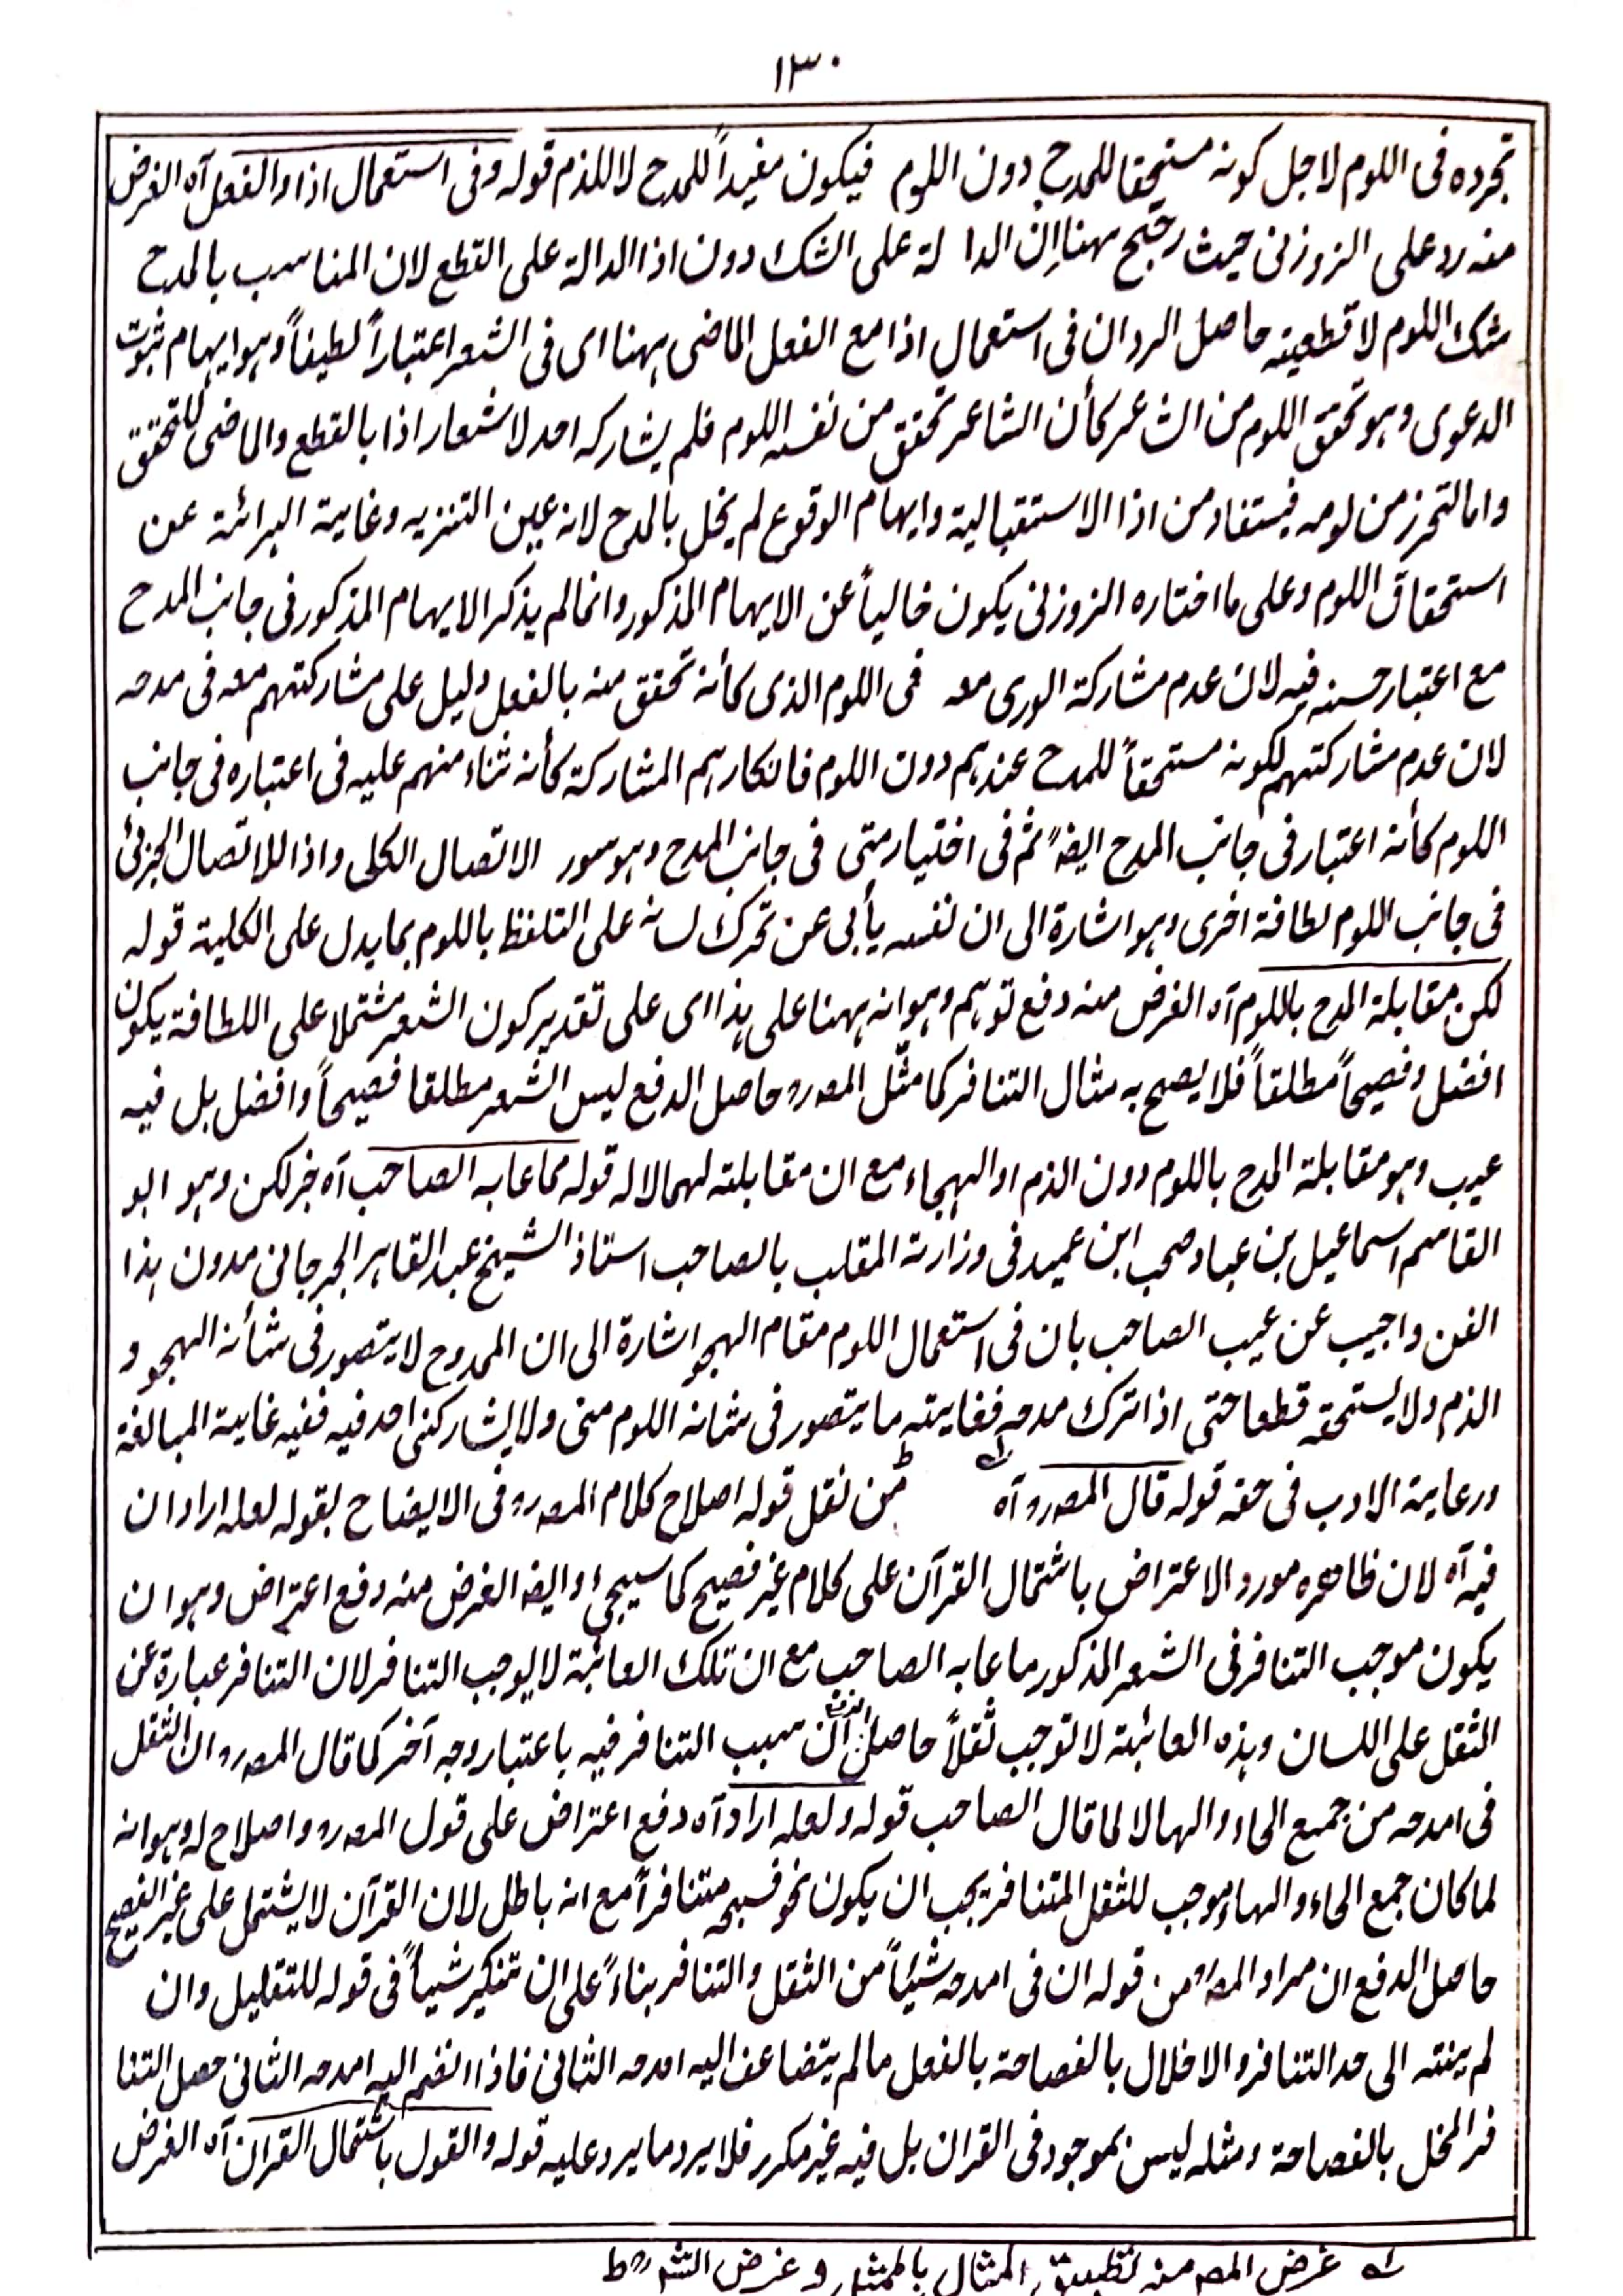 ١٣٠
تجرده فى اللوم لاجل كونه مستحقا للمدح دون اللوم فيكون مفيداً للمدح لا للذم قوله وفى استعمال اذا والفعل آه الغرض
منه رد على الزوزنى حيث رجح ههنا إن الدالة على الشك دون اذا الدالة على القطع لان المناسب بالمدح
شك اللوم لا قطعيته حاصل الرد ان فى استعمال اذا مع الفعل الماضى ههنا اى فى الشعر اعتباراً لطيفاً وهو ايهام ثبوت
الدعوى وهو تحقق اللوم من الشاعر كأن الشاعر تحقق من نفسه اللوم فلم يشاركه احد لاشعار اذا بالقطع والماضى للتحقق
واما التحرز من لومه فيستفاد من اذا الاستقبالية وايهام الوقوع لم يخل بالمدح لانه عين التنزيه وغاية البرائة عن
استحقاق اللوم وعلى ما اختاره الزوزنى يكون خالياً عن الايهام المذكور وانما لم يذكر الايهام المذكور فى جانب المدح
مع اعتبار حسنه فيه لان عدم مشاركة الورى معه فى اللوم الذى كأنه تحقق منه بالفعل دليل على مشاركتهم معه فى مدحه
لان عدم مشاركتهم لكونه مستحقاً للمدح عندهم دون اللوم فانكارهم المشاركة كأنه ثناء منهم عليه فى اعتباره فى جانب
اللوم كأنه اعتبار فى جانب المدح ايضاً ثم فى اختيار متى فى جانب المدح وهو سور الاتصال الكلى واذا للاتصال الجزئى
فى جانب اللوم لطافة اخرى وهو اشارة الى ان نفسه يأبى عن تحرك لسانه على التلفظ باللوم بما يدل على الكلية قوله
لكن مقابلة المدح باللوم آه الغرض منه دفع توهم وهو انه ههنا على هذا اى على تقدير كون الشعر مشتملا على اللطافة يكون
افضل وفصيحاً مطلقاً فلا يصح به مثال التنافر كما مثّل المصرو حاصل الدفع ليس الشعر مطلقا فصيحاً وافضل بل فيه
عيب وهو مقابلة المدح باللوم دون الذم او الهجاء مع ان مقابلته لهما لا له قوله مما عابه الصاحب آه خبر لكن وهو ابو
القاسم اسماعيل بن عباد صحب ابن عميد فى وزارته المقلب بالصاحب استاذ الشيخ عبد القاهر الجرجانى مدون هذا
الفن واجيب عن عيب الصاحب بان فى استعمال اللوم مقام الهجو اشارة الى ان الممدوح لا يتصور فى شأنه الهجو و
الذم ولا يستحقه قطعا حتى اذا ترك مدحه فغايته ما يتصور فى شانه اللوم منى ولا يشاركنى احد فيه ففيه غاية المبالغة
ورعاية الادب فى حقه قوله قال المصرو آه من نقل قوله اصلاح كلام المصرو فى الايضاح بقوله لعله اراد ان
فيه آه لان ظاهره مورد الاعتراض باشتمال القرآن على كلام غير فصيح كما سيجئ او ايضا الغرض منه دفع اعتراض وهو ان
يكون موجب التنافر فى الشعر المذكور ما عابه الصاحب مع ان تلك العائبة لا يوجب التنافر لان التنافر عبارة عن
الثقل على اللسان وهذه العائبة لا توجب ثقلاً حاصل الدفع ان سبب التنافر فيه باعتبار وجه آخر كما قال المصرو ان الثقل
فى امدحه من جميع الحاء والها لا لما قال الصاحب قوله ولعله اراد آه دفع اعتراض على قول المصرو واصلاح له وهو انه
لما كان جمع الحاء والهاء موجب للثقل المتنافر يجب ان يكون نحو فسبحه متنافراً مع انه باطل لان القرآن لا يشتمل على غير الفصيح
حاصل الدفع ان مراد المصرو من قوله ان فى امدحه شيئاً من الثقل والتنافر بناءً على ان تنكير شيأً فى قوله للتقليل وان
لم ينته الى حد التنافر والاخلال بالفصاحة بالفعل ما لم يتضاعف اليه امدحه الثانى فاذا انضم اليه امدحه الثانى حصل التنا
فر المخل بالفصاحة ومثله ليس بموجود فى القران بل فيه غير مكرر فلا يرد ما يرد عليه قوله والقول باشتمال القران آه الغرض
غرض المصـ منه تطبيق المثال بالممثل وغرض الشـ